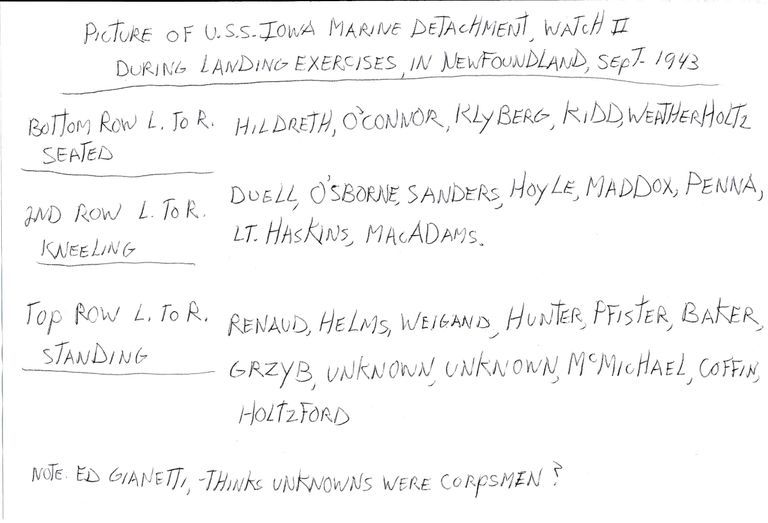 PICTURE OF U.S.S. IOWA MARINE DETACHMENT, WATCH II
DURING LANDING EXERCISES, IN NEWFOUNDLAND, SEPT- 1943
BOTTOM ROW L. TO R. HILDRETH, O'CONNOR, KLYBERG, KIDD, WEATHERHOLTZ
SEATED
2ND ROW L. TO R. DUELL, O'SBORNE, SANDERS, HOYLE, MADDOX, PENNA,
KNEELING LT. HASKINS, MACADAMS.
TOP ROW L. TO R. RENAUD, HELMS, WEIGAND, HUNTER, PFISTER, BAKER,
STANDING GRZYB, UNKNOWN, UNKNOWN, McMICHAEL, COFFIN,
HOLTZFORD
NOTE: ED GIANETTI, -THINKS UNKNOWNS WERE CORPSMEN?